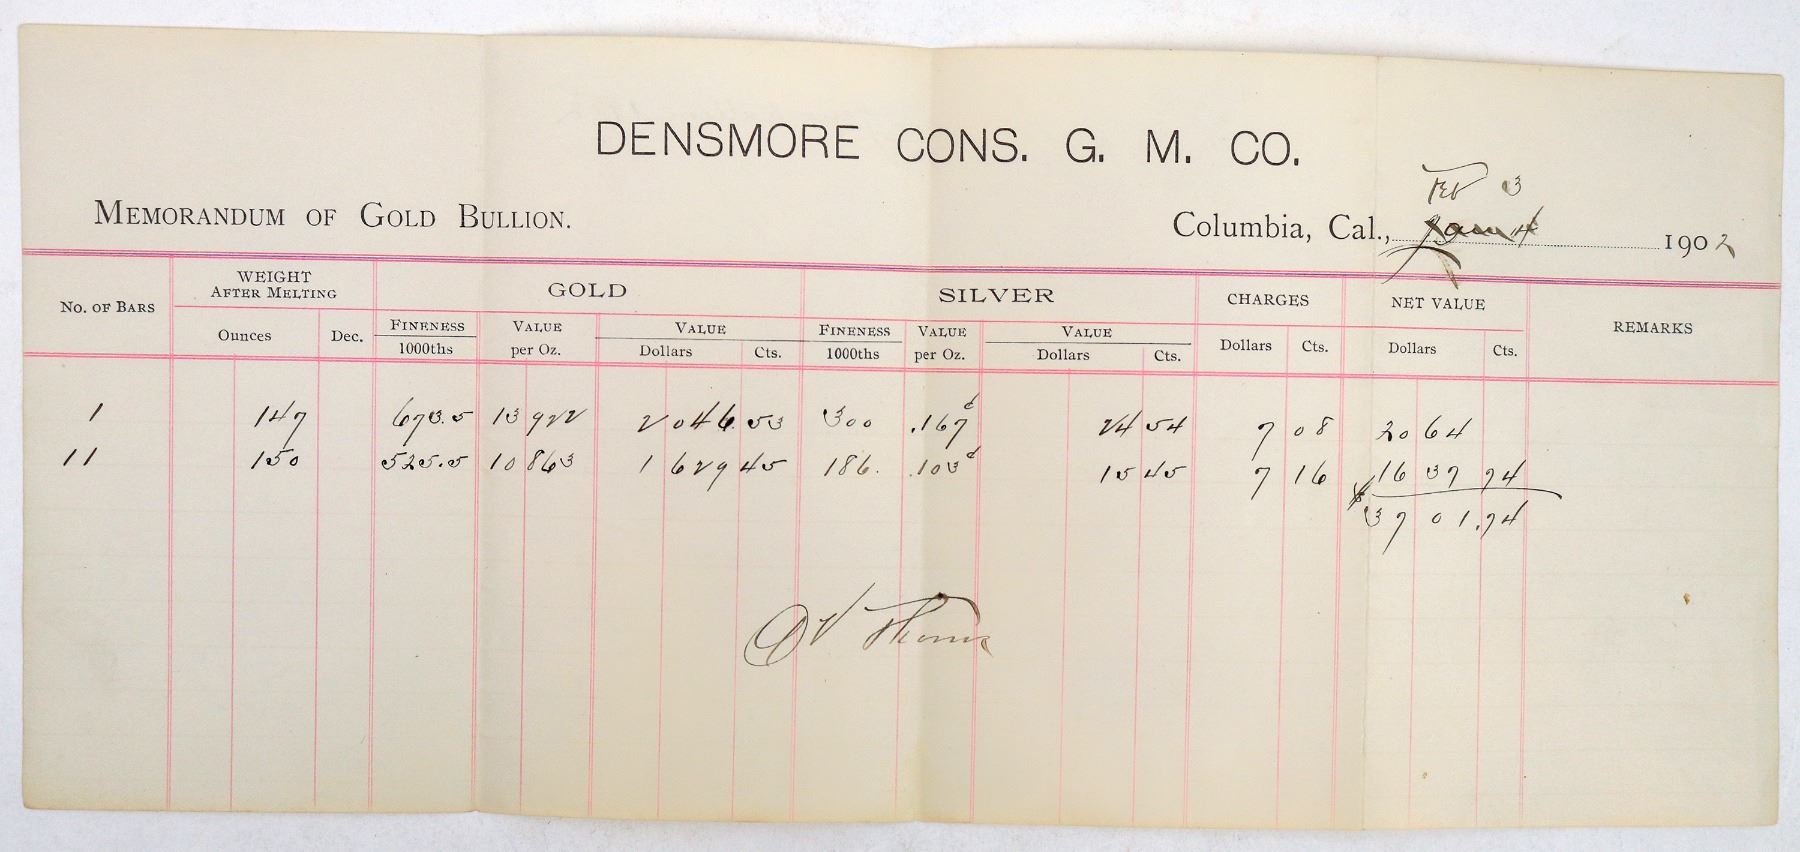 DENSMORE CONS. G. M. CO.
Feb 3
MEMORANDUM OF GOLD BULLION.
Columbia, Cal., Jan 4 1902
No. OF BARS
WEIGHT AFTER MELTING
GOLD
SILVER
CHARGES
NET VALUE
REMARKS
Ounces Dec.
FINENESS 1000ths
VALUE per Oz.
VALUE
Dollars Cts.
FINENESS 1000ths
VALUE per Oz.
VALUE
Dollars Cts.
Dollars Cts.
Dollars Cts.
1 147 673.5 13 922 2046.53 300 .167¢ 24 54 7 08 2064
11 150 525.5 10 863 1629 45 186. .103¢ 15 45 7 16 1637 74
$3701.74